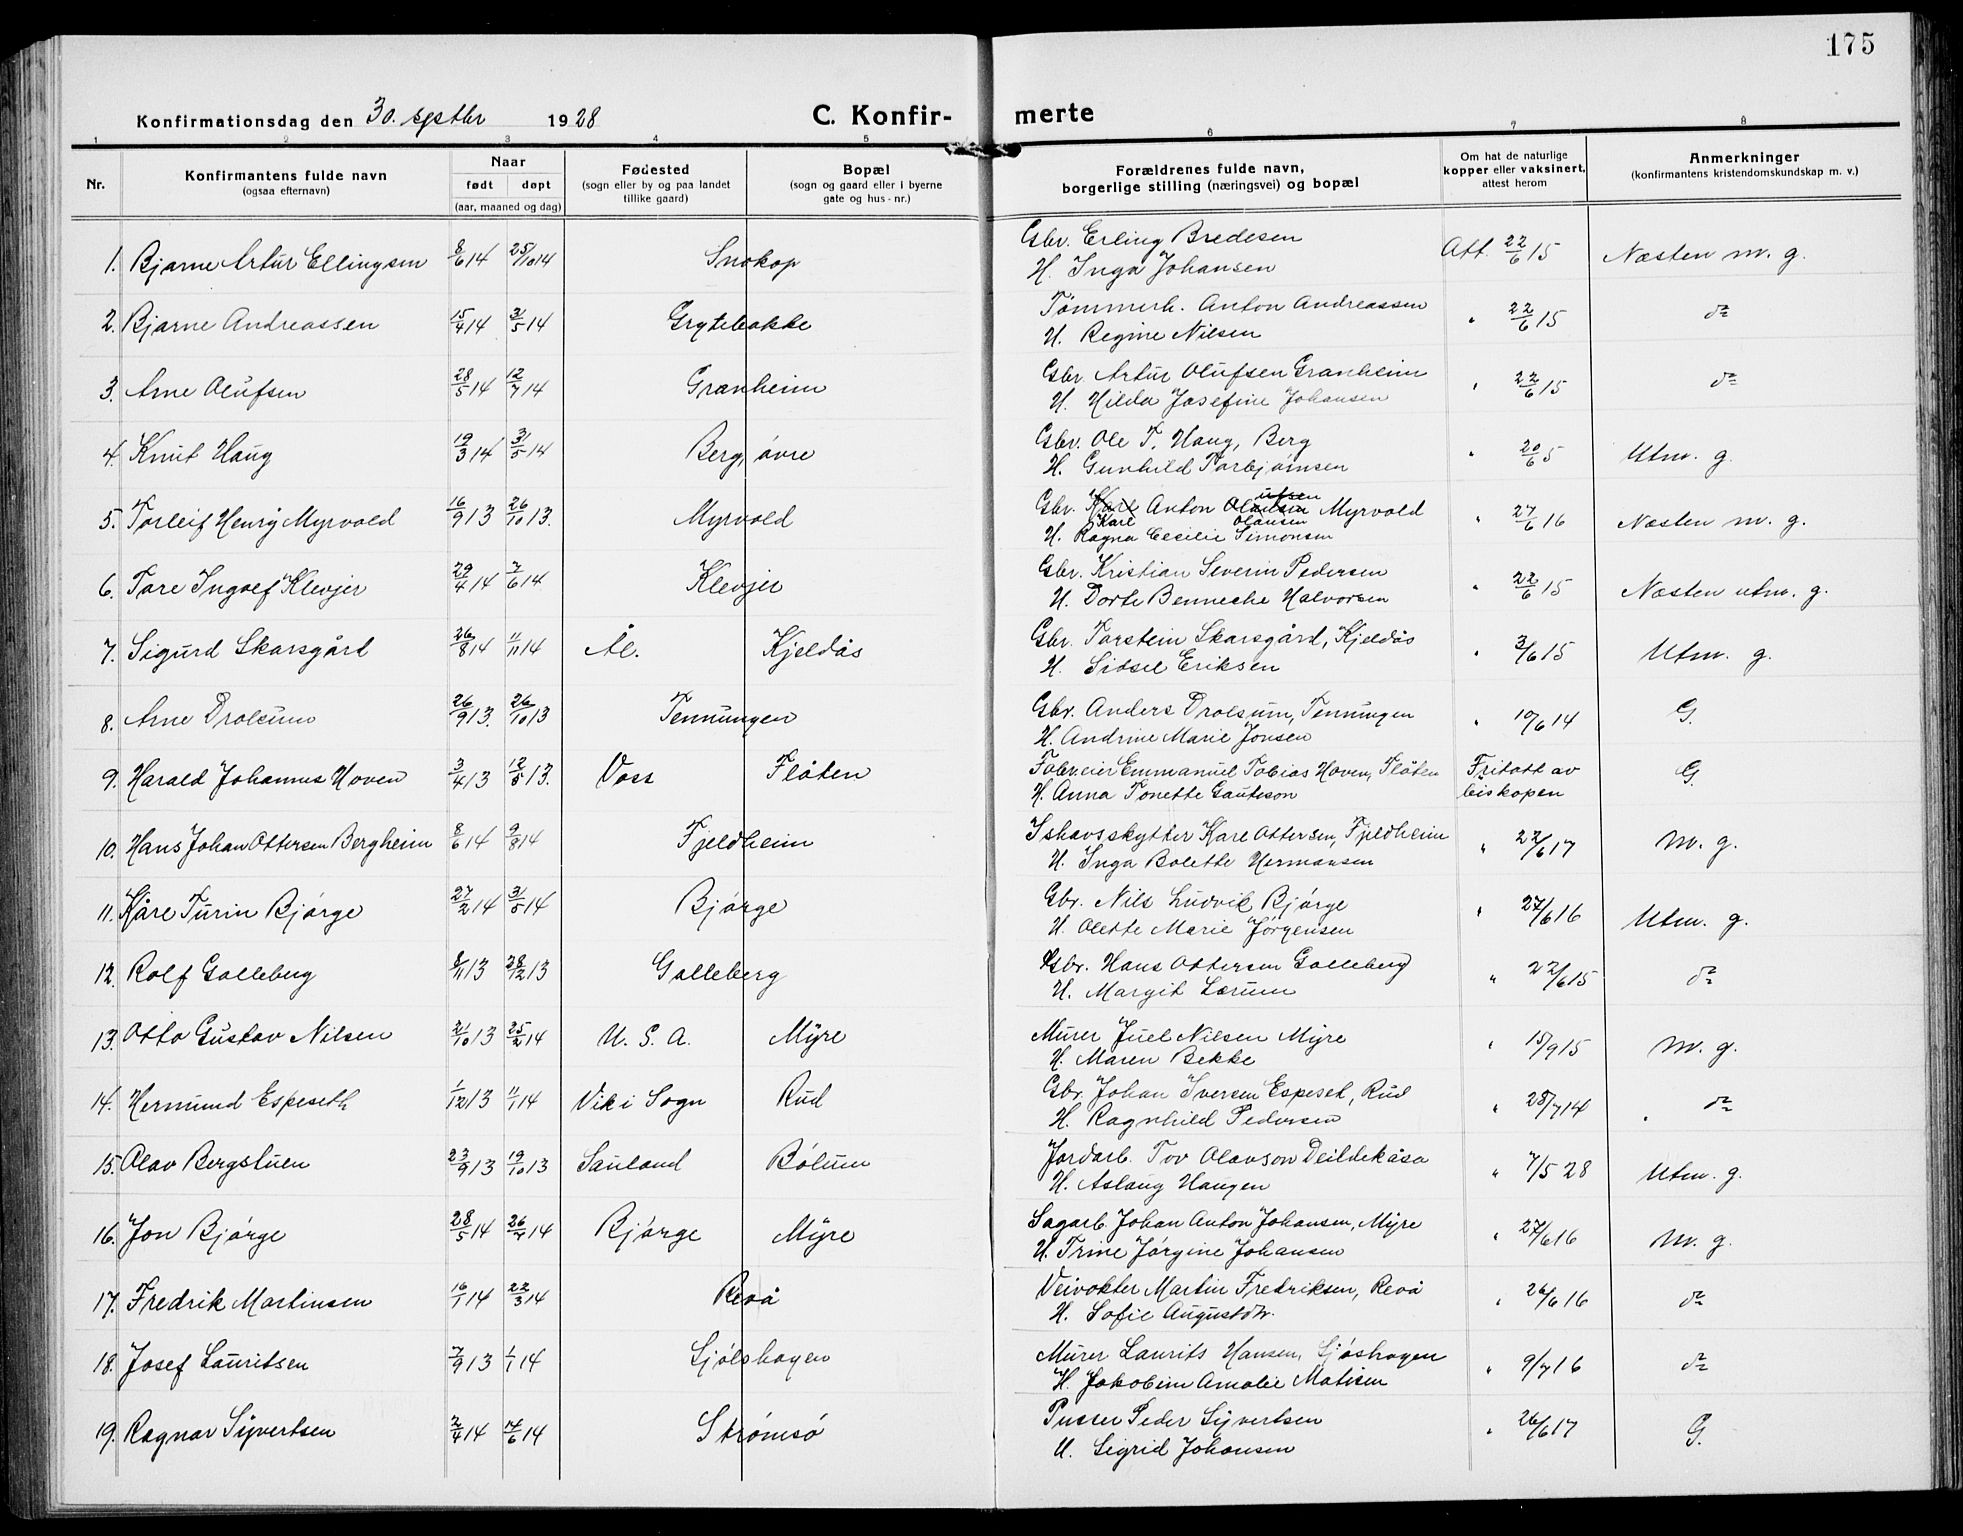 175
Konfirmationsdag den 30. septbr 1928
C. Konfir- merte
1 2 3 4 5 6 7 8
Nr.
Konfirmantens fulde navn
(ogsaa efternavn)
Naar
født døpt
(aar, maaned og dag)
Fødested
(sogn eller by og paa landet
tillike gaard)
Bopæl
(sogn og gaard eller i byerne
gate og hus-nr.)
Forældrenes fulde navn,
borgerlige stilling (næringsvei) og bopæl
Om hat de naturlige
kopper eller vaksinert,
attest herom
Anmerkninger
(konfirmantens kristendomskundskap m. v.)
1. Bjarne Artur Ellingsen 8/6 14 25/10 14 Snokop Gbr. Erling Bredesen Att. 22/6 15 Næsten m. g.
H. Inga Johansen
2. Bjarne Andreassen 15/4 14 31/5 14 Grytebakke Tømmerh. Anton Andreassen " 22/6 15 do
H. Regine Nilsen
3. Arne Olufsen 28/5 14 12/7 14 Granheim Gbr. Artur Olufsen Granheim " 22/6 15 do
H. Hilda Josefine Johansen
4. Knut Haug 19/3 14 31/5 14 Berg, øvre Gbr. Ole T. Haug, Berg " 20/6 5 Utm. g.
H. Gunhild Torbjørnsen
5. Torleif Henry Myrvold 16/9 13 26/10 13. Myrvold Gbr. Karl Anton Olausen Myrvold " 27/6 16 Næsten m. g.
Karl Olausen
H. Ragna Cecilie Simonsen
6. Tore Ingolf Klevjer 29/4 14 7/6 14. Klevjer Gbr. Kristian Severin Pedersen " 22/6 15 Næsten utm. g.
H. Dorte Benneche Halvorsen
7. Sigurd Skarsgård 26/8 14 11/11 14 Ål. Kjeldås Gbr. Torstein Skarsgård, Kjeldås " 3/6 15 Utm. g.
H. Sidsel Eriksen
8. Arne Drolsum 26/9 13. 26/10 13 Tenningen Gbr. Anders Drolsum, Tenningen " 10/6 14 G.
H. Andrine Marie Jonsen
9. Harald Johannes Hoven 3/4 13 12/5 13. Voss Flåten Fabr.eier Emmanuel Tobias Hoven, Flåten Fritatt av G.
H. Anna Tonette Gauteson biskopen
10. Hans Johan Ottersen Bergheim 8/6 14 9/8 14 Fjeldheim Ishavsskytter Karl Ottersen, Fjeldheim " 22/6 17 M. g.
H. Inga Bolette Hermansen
11. Kåre Turin Bjørge 27/2 14 31/5 14 Bjørge Gbr. Nils Ludvik Bjørge " 27/6 16 Utm. g.
H. Olette Marie Jørgensen
12. Rolf Galleberg 8/11 13 28/12 13 Galleberg Gbr. Hans Ottersen Galleberg " 22/6 15 do
H. Margit Lærum
13. Otto Gustav Nilsen 21/10 13 25/2 14 U. S. A. Myre Murer Juel Nilsen Myre " 15/9 15 M. g.
H. Maren Bekke
14. Hermund Espeseth 1/12 13 11/1 14 Vik i Sogn Rud Gbr. Johan Iversen Espeset, Rud " 28/7 14 do
H. Ragnhild Pedersen
15. Olav Bergstuen 23/9 13 19/10 13 Sauland Bolum Jordarb. Tov Olavson Deildekåsa " 7/5 28 Utm. g.
H. Aslaug Haugen
16. Jon Bjørge 28/5 14 26/7 14 Bjørge Myre Sagarb. Johan Anton Johansen, Myre " 27/6 16 M. g.
H. Trine Jørgine Johansen
17. Fredrik Martinsen 16/1 14 22/3 14 Revå Veivokter Martin Fredriksen, Revå " 26/6 16 do
H. Sofie Augustdtr.
18. Josef Lauritsen 7/9 13 1/1 14 Sjølshagen Murer Laurits Hansen, Sjøshagen " 9/7 16 do
H. Jakobine Amalie Matisen
19. Ragnar Syvertsen 2/4 14 14/6 14 Strømsø Pusser Peder Syvertsen " 26/6 17 G.
H. Sigrid Johansen